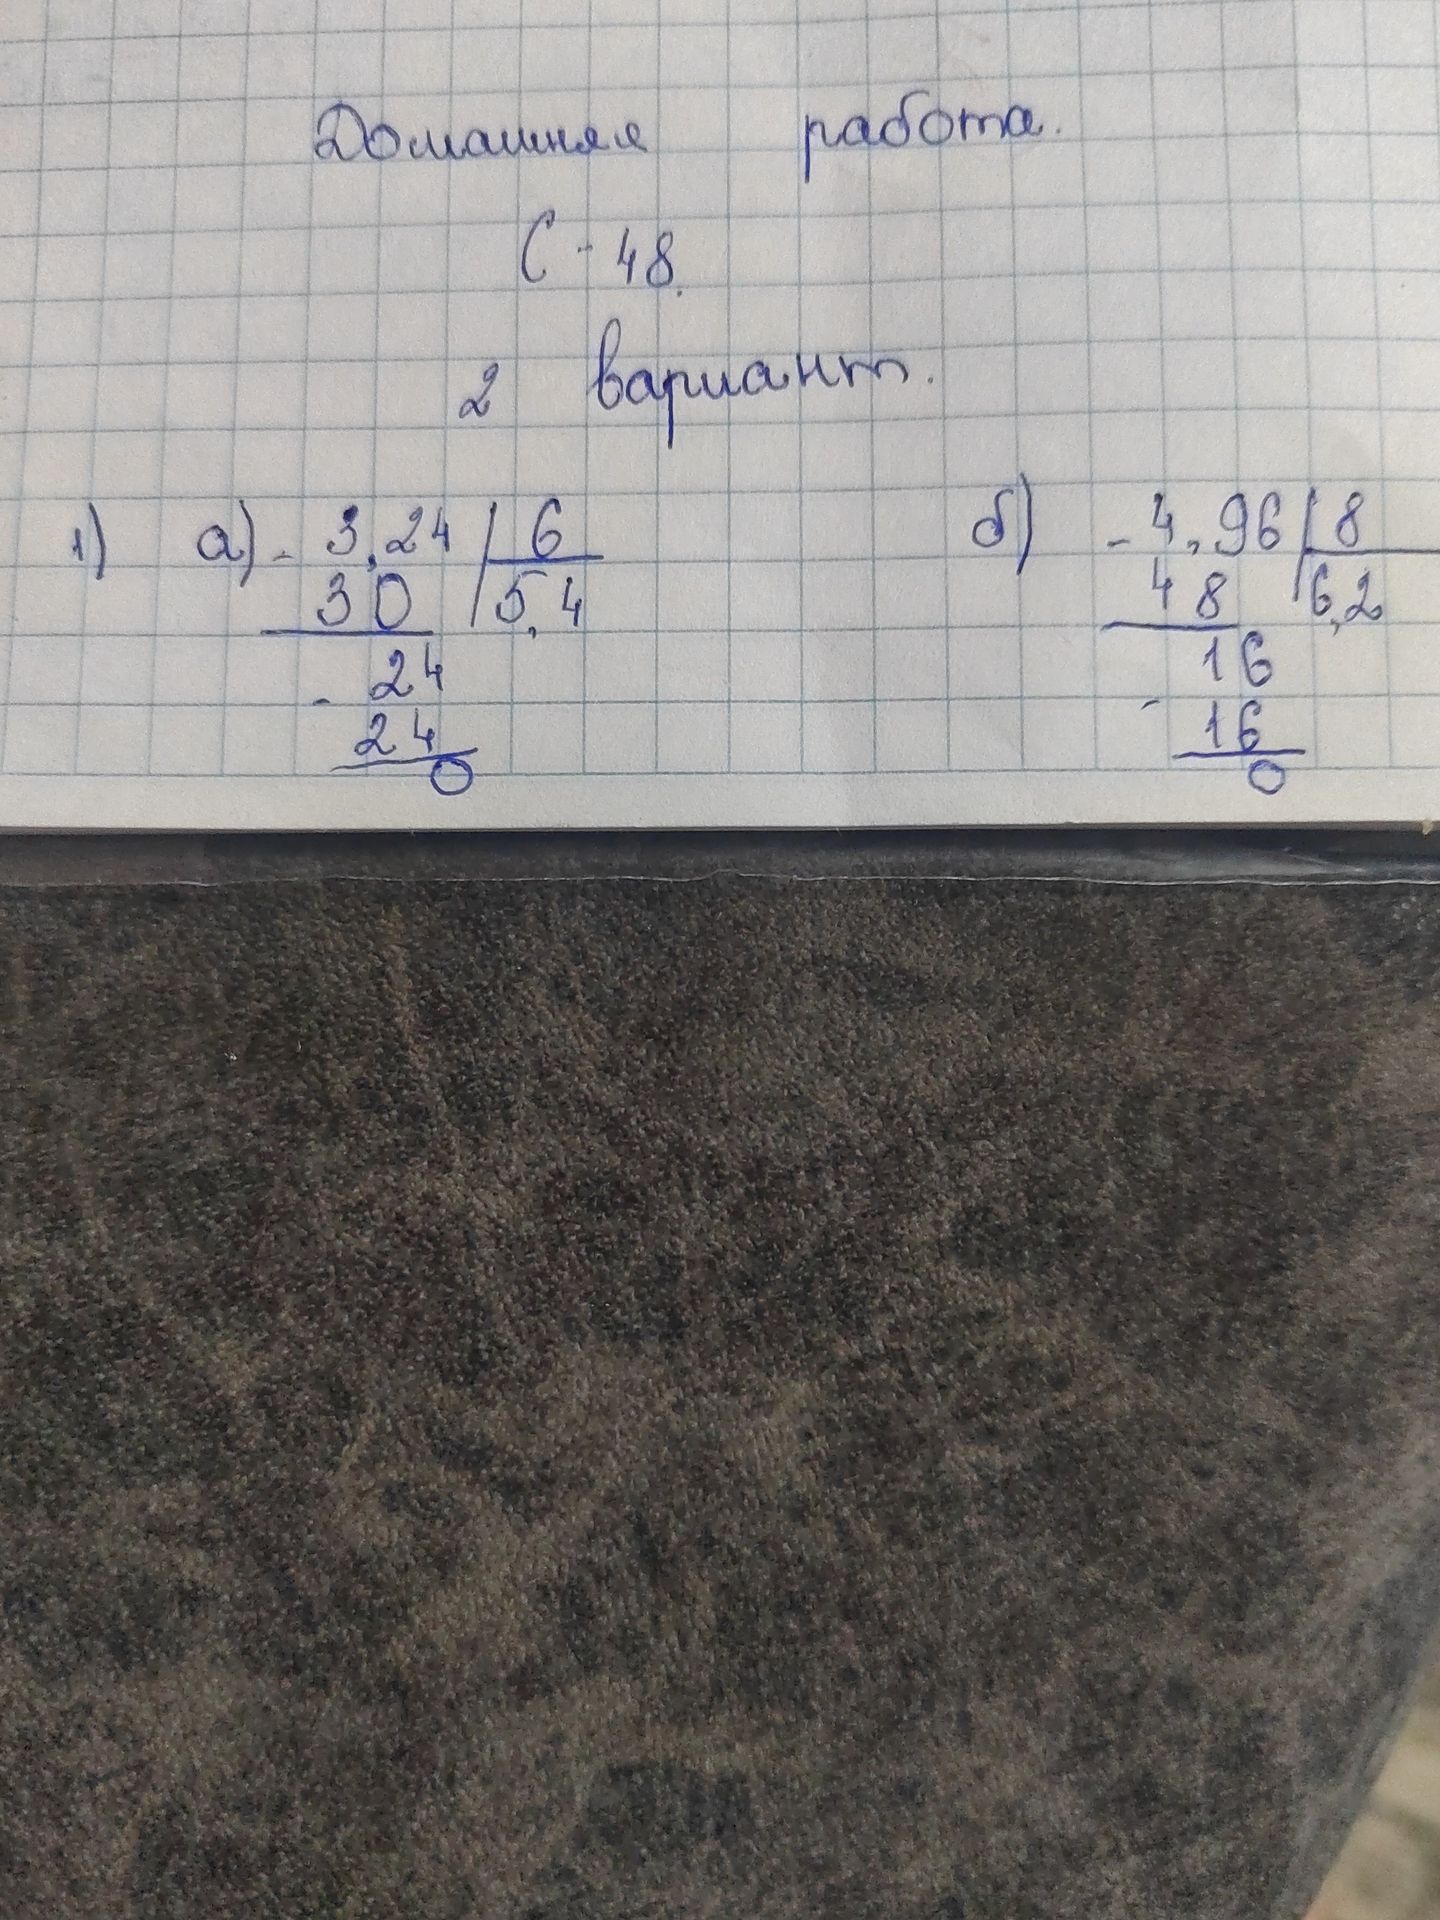 Домашняя работа.
С-48.
2 вариант.
1) а) - 3,24 | 6 б) - 4,96 | 8
30 | 5,4 48 | 6,2
- 24 - 16
24 16
0 0